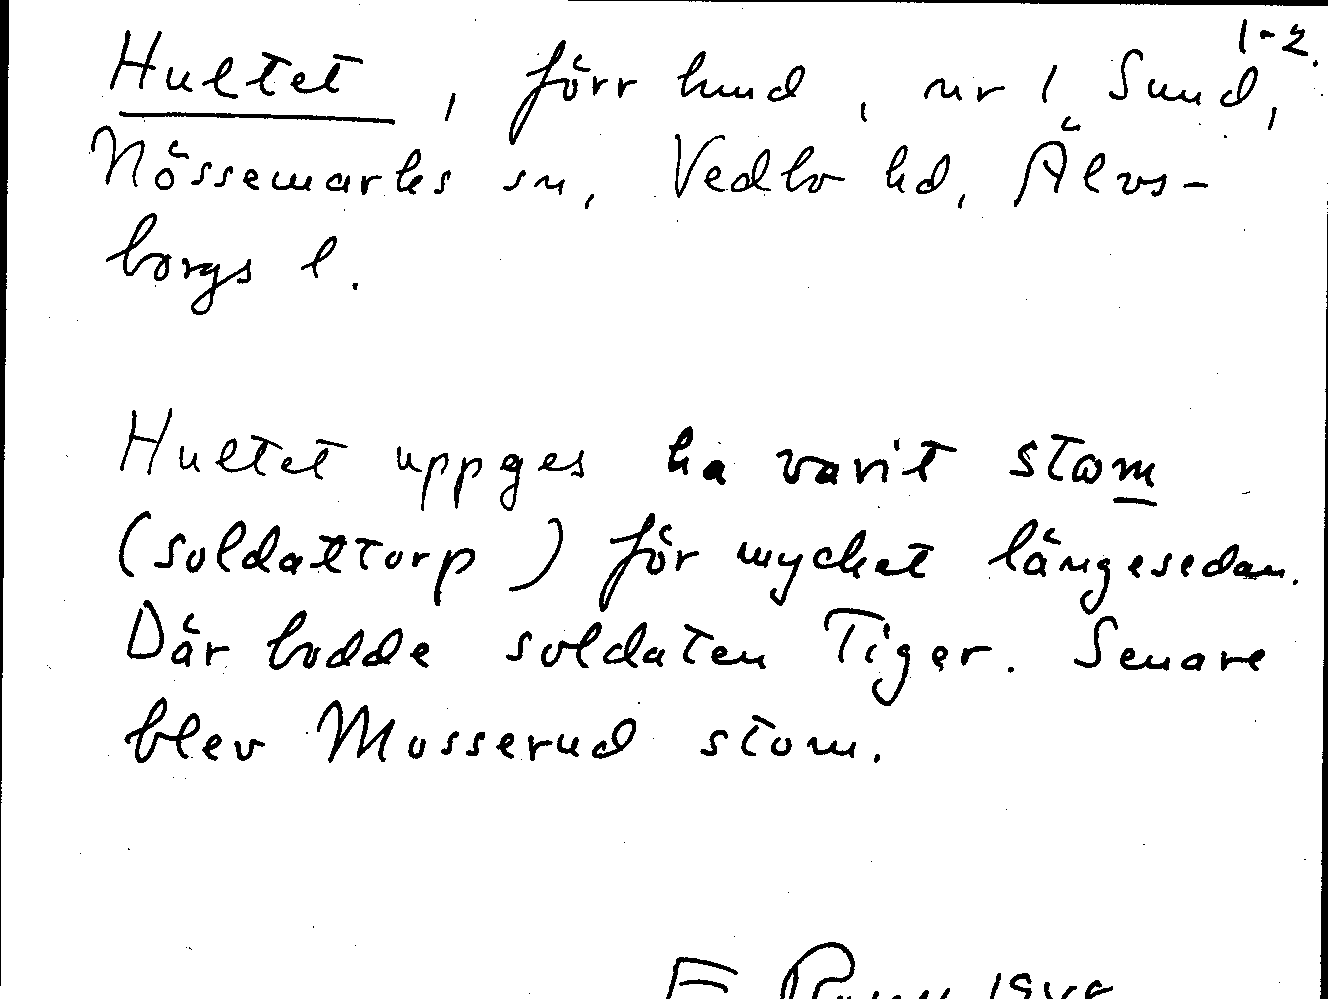 1-2.
Hultet, förr hmd, nr 1 Sund,
Nössemarks sn, Vedbo hd, Älvs-
borgs l.
Hultet uppges ha varit stom
(soldattorp) för mycket längesedan.
Där bodde soldaten Tiger. Senare
blev Mosserud stom.
F.